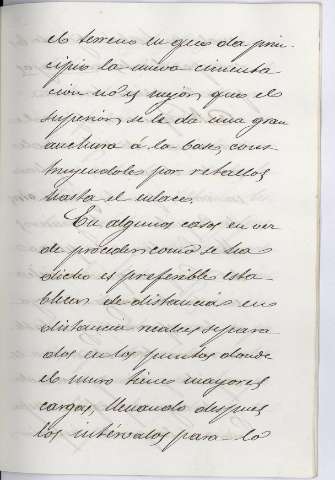 el terreno en que da prin-
cipio la nueva cimenta
ción no es mejor que el
superior, se le da una gran
anchura á la base, cons
truyendola por retallos
hasta el enlace.
En algunos casos en vez
de proceder como se ha
dicho es preferible esta-
blecer de distancia en
distancia macizos separa
dos en los puntos donde
el muro tiene mayores
cargas, llenando despues
los intérvalos para lo